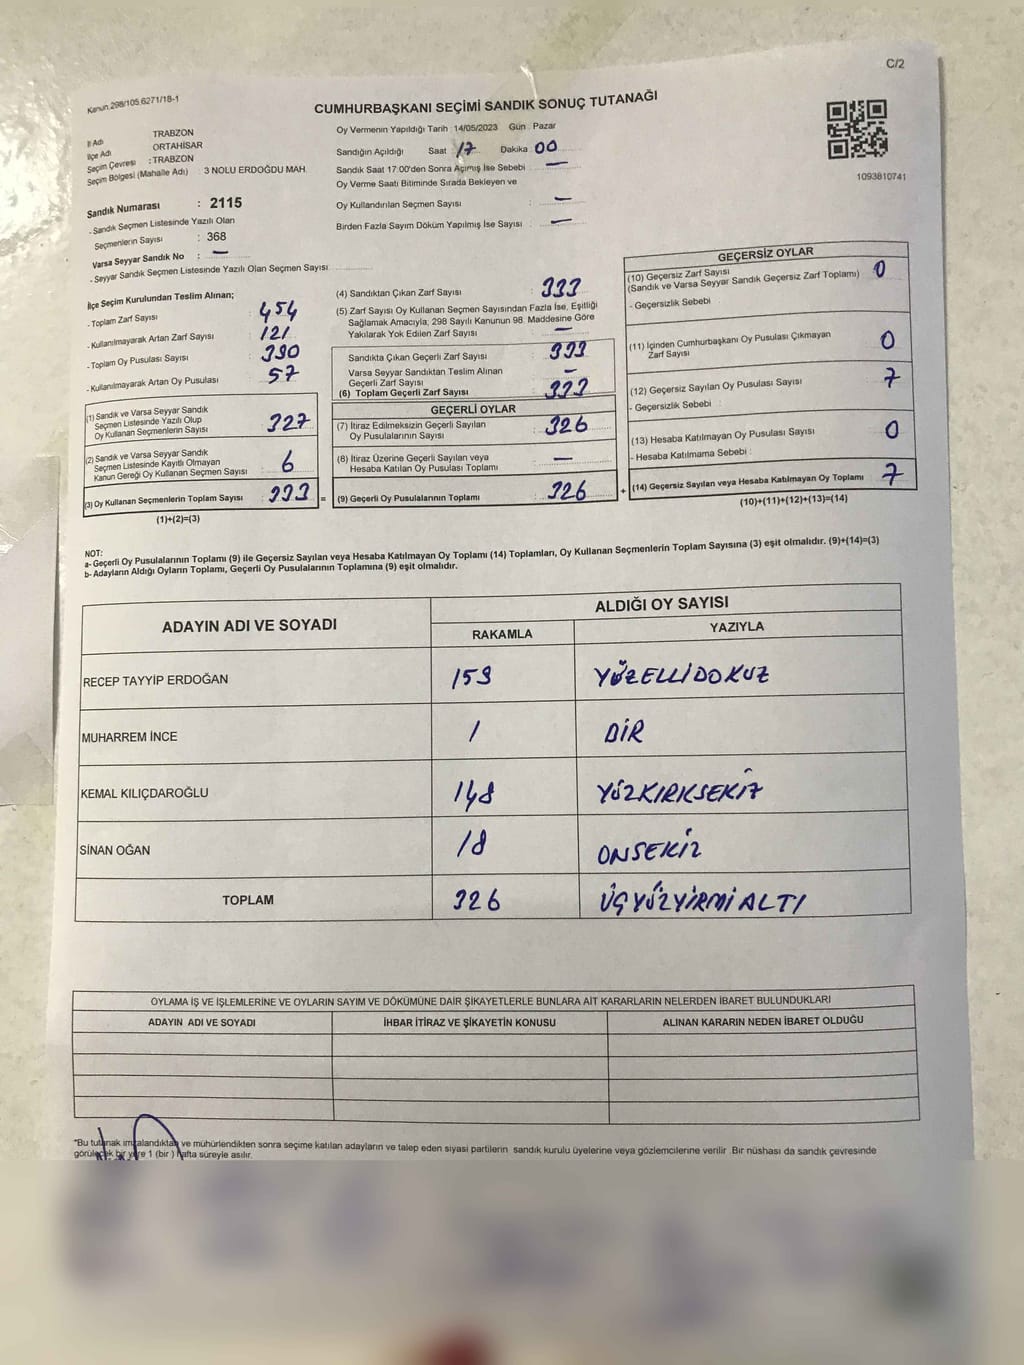 C/2
Kanun.298/105,6271/18-1
CUMHURBAŞKANI SEÇİMİ SANDIK SONUÇ TUTANAĞI
İl Adı TRABZON
İlçe Adı ORTAHİSAR
Seçim Çevresi : TRABZON
Seçim Bölgesi (Mahalle Adı) : 3 NOLU ERDOĞDU MAH.
Sandık Numarası : 2115
- Sandık Seçmen Listesinde Yazılı Olan
Seçmenlerin Sayısı : 368
Varsa Seyyar Sandık No : —
- Seyyar Sandık Seçmen Listesinde Yazılı Olan Seçmen Sayısı
Oy Vermenin Yapıldığı Tarih 14/05/2023 Gün Pazar
Sandığın Açıldığı Saat 17 Dakika 00
Sandık Saat 17:00'den Sonra Açımış İse Sebebi —
Oy Verme Saati Bitiminde Sırada Bekleyen ve
Oy Kullandırılan Seçmen Sayısı —
Birden Fazla Sayım Döküm Yapılmış İse Sayısı : —
1093810741
İlçe Seçim Kurulundan Teslim Alınan;
- Toplam Zarf Sayısı : 454
- Kullanılmayarak Artan Zarf Sayısı : 121
- Toplam Oy Pusulası Sayısı : 390
- Kullanılmayarak Artan Oy Pusulası : 57
(1) Sandık ve Varsa Seyyar Sandık
Seçmen Listesinde Yazılı Olup
Oy Kullanan Seçmenlerin Sayısı : 327
(2) Sandık ve Varsa Seyyar Sandık
Seçmen Listesinde Kayıtlı Olmayan
Kanun Gereği Oy Kullanan Seçmen Sayısı : 6
(3) Oy Kullanan Seçmenlerin Toplam Sayısı : 333 =
(1)+(2)=(3)
(4) Sandıktan Çıkan Zarf Sayısı : 333
(5) Zarf Sayısı Oy Kullanan Seçmen Sayısından Fazla İse, Eşitliği
Sağlamak Amacıyla; 298 Sayılı Kanunun 98. Maddesine Göre
Yakılarak Yok Edilen Zarf Sayısı : —
Sandıkta Çıkan Geçerli Zarf Sayısı : 333
Varsa Seyyar Sandıktan Teslim Alınan
Geçerli Zarf Sayısı : —
(6) Toplam Geçerli Zarf Sayısı : 333
GEÇERLİ OYLAR
(7) İtiraz Edilmeksizin Geçerli Sayılan
Oy Pusulalarının Sayısı : 326
(8) İtiraz Üzerine Geçerli Sayılan veya
Hesaba Katılan Oy Pusulası Toplamı : —
(9) Geçerli Oy Pusulalarının Toplamı : 326 +
GEÇERSİZ OYLAR
(10) Geçersiz Zarf Sayısı : 0
(Sandık ve Varsa Seyyar Sandık Geçersiz Zarf Toplamı)
- Geçersizlik Sebebi :
(11) İçinden Cumhurbaşkanı Oy Pusulası Çıkmayan
Zarf Sayısı : 0
(12) Geçersiz Sayılan Oy Pusulası Sayısı : 7
- Geçersizlik Sebebi :
(13) Hesaba Katılmayan Oy Pusulası Sayısı : 0
- Hesaba Katılmama Sebebi :
(14) Geçersiz Sayılan veya Hesaba Katılmayan Oy Toplamı : 7
(10)+(11)+(12)+(13)=(14)
NOT:
a- Geçerli Oy Pusulalarının Toplamı (9) ile Geçersiz Sayılan veya Hesaba Katılmayan Oy Toplamı (14) Toplamları, Oy Kullanan Seçmenlerin Toplam Sayısına (3) eşit olmalıdır. (9)+(14)=(3)
b- Adayların Aldığı Oyların Toplamı, Geçerli Oy Pusulalarının Toplamına (9) eşit olmalıdır.
ADAYIN ADI VE SOYADI ALDIĞI OY SAYISI
RAKAMLA YAZIYLA
RECEP TAYYİP ERDOĞAN 159 YÜZELLİDOKUZ
MUHARREM İNCE 1 BİR
KEMAL KILIÇDAROĞLU 148 YÜZKIRKSEKİZ
SİNAN OĞAN 18 ONSEKİZ
TOPLAM 326 ÜÇYÜZYİRMİALTI
OYLAMA İŞ VE İŞLEMLERİNE VE OYLARIN SAYIM VE DÖKÜMÜNE DAİR ŞİKAYETLERLE BUNLARA AİT KARARLARIN NELERDEN İBARET BULUNDUKLARI
ADAYIN ADI VE SOYADI İHBAR İTİRAZ VE ŞİKAYETİN KONUSU ALINAN KARARIN NEDEN İBARET OLDUĞU
*Bu tutanak imzalandıktan ve mühürlendikten sonra seçime katılan adayların ve talep eden siyasi partilerin sandık kurulu üyelerine veya gözlemcilerine verilir. Bir nüshası da sandık çevresinde
görülecek bir yere 1 (bir) hafta süreyle asılır.